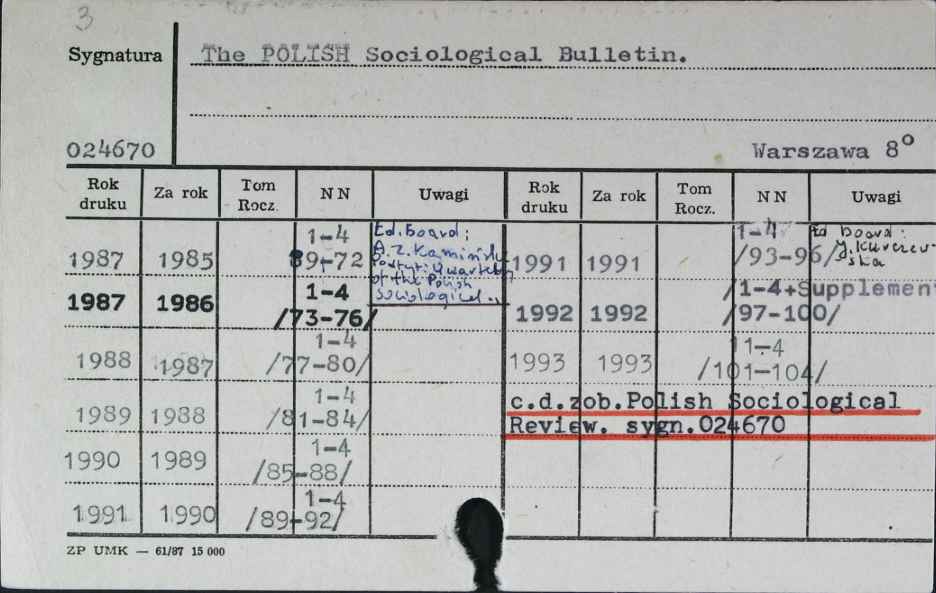 3
Sygnatura The POLISH Sociological Bulletin.
024670 Warszawa 8°
Rok druku Za rok Tom Rocz. NN Uwagi Rok druku Za rok Tom Rocz. NN Uwagi
1987 1985 1-4 69-72 Ed. board:
A.Z. Kamiński
Podtyt: Quarterly
of the Polish
Sociological...
1987 1986 1-4 /73-76/
1988 1987 1-4 /77-80/
1989 1988 1-4 /81-84/
1990 1989 1-4 /85-88/
1991 1990 1-4 /89-92/
1991 1991 1-4 /93-96/ Ed board:
J. Kurczew-
ska
1992 1992 /1-4+Supplemen
/97-100/
1993 1993 1-4 /101-104/
c.d.zob.Polish Sociological
Review. sygn.024670
ZP UMK — 61/87 15 000